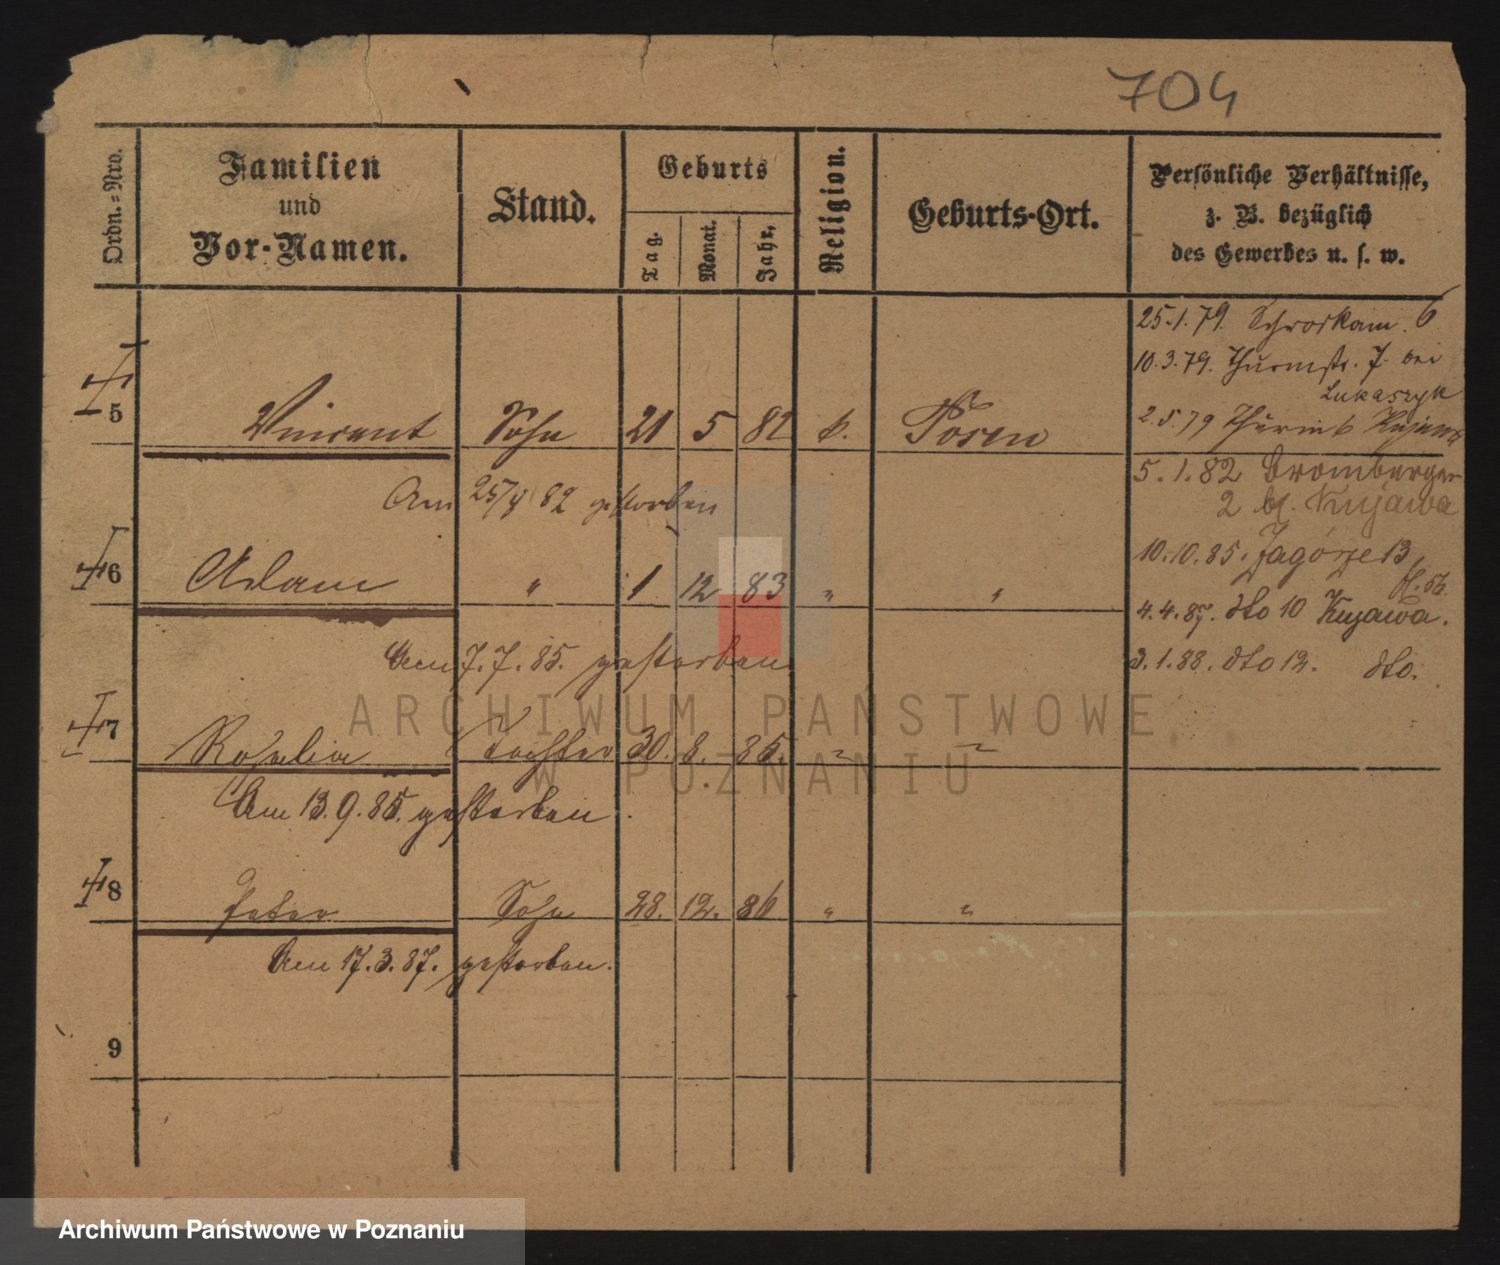 704
Ordn.-Nro.
Familien
und
Vor-Namen.
Stand.
Geburts
Tag.
Monat.
Jahr.
Religion.
Geburts-Ort.
Persönliche Verhältnisse,
z. B. bezüglich
des Gewerbes u. s. w.
25.1.79. 6
10.3.79. Thurmstr. 7 bei
Lukaszyk
2.5.79 Kujawa
5 Vincent Sohn 21 5 82 k. Posen
5.1.82 Bromberger
2 bei Kujawa
Am 25/8 82 gestorben
10.10.85. Zagórze 13
6 Adam " 1 12 83 " "
4.4.87. dto 10 Kujawa.
Am 7.7.85. gestorben
3.1.88. dto 12. dto.
ARCHIWUM PAŃSTWOWE
7 Rosalia Tochter 30. 8. 85. " "
W POZNANIU
Am 13.9.85. gestorben.
8 Peter Sohn 28. 12. 86 " "
Am 17.3.87. gestorben.
9
Archiwum Państwowe w Poznaniu